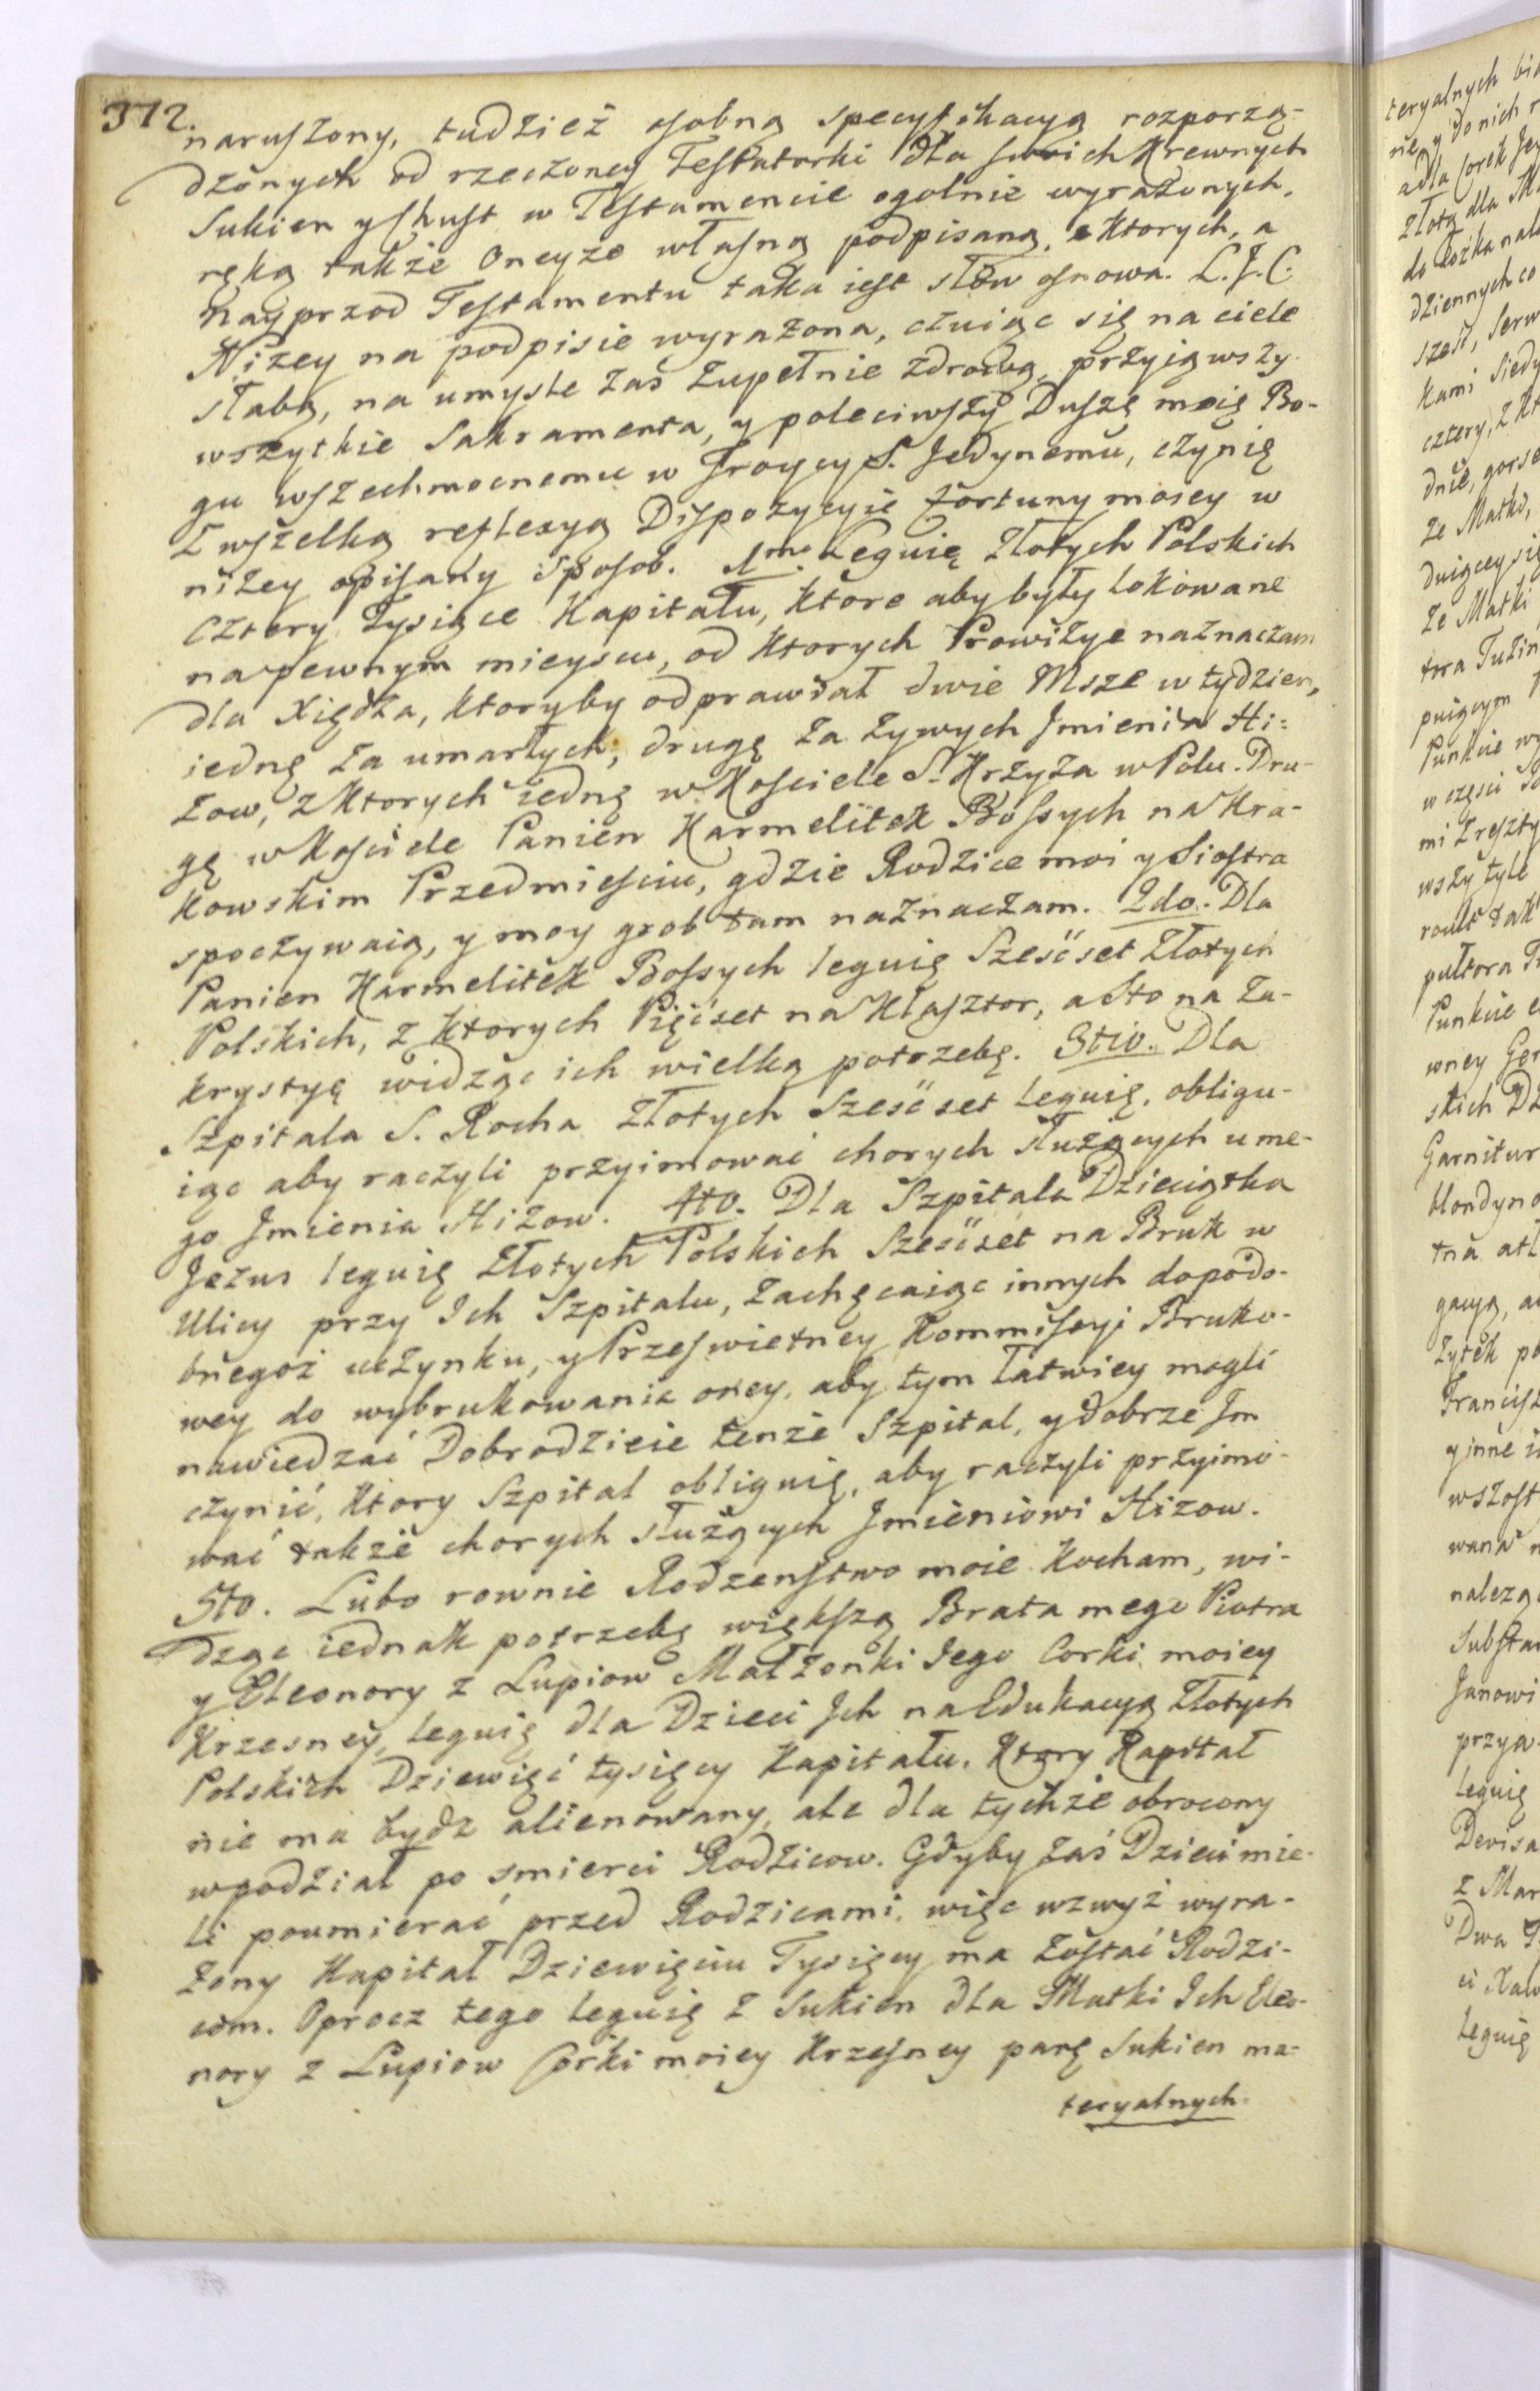 372.
naruszony, tudzież osobną specyfikacyą rozporzą-
dzonych od rzeczoney Testatorki dla swoich Krewnych
Sukien y Chust w Testamencie ogolnie wyrażonych,
ręką także Oneyże własną podpisaną, z ktorych, a
Nayprzod Testamentu taka iest słów osnowa. L. J. C.
Niżey na podpisie wyrażona, czuiąc się na ciele
słabą, na umysle zaś zupełnie zdrową, przyiąwszy
wszytkie Sakramenta, y poleciwszy Duszę moię Bo-
gu wszechmocnemu w Troycy S. Jedynemu, czynię
z wszelką reflexyą Dispozycyie fortuny moiey w
niżey opisany sposob. 1mo. Leguię Złotych Polskich
Cztery Tysiące Kapitału, ktore aby były lokowane
na pewnym mieyscu, od ktorych Prowizye naznaczam
dla Xiędza, ktoryby odprawiał dwie Msze w tydzień,
iednę za umarłych, drugę za żywych Jmienia Hi=
żow, z ktorych iednę w Kosciele S. Krzyża w Polu. Dru-
gę w Kosciele Panien Karmelitek Bossych na Kra-
kowskim Przedmiesciu, gdzie Rodzice moi y Siostra
spoczywaią, y moy grob tam naznaczam. 2do. Dla
Panien Karmelitek Bossych leguię Szesćset Złotych
Polskich, z ktorych Pięćset na Klasztor, a Sto na Za-
krystyę widząc ich wielką potrzebę. 3tio. Dla
Szpitala S. Rocha Złotych Szesćset leguię, obligu-
iąc aby raczyli przyimować chorych służących u me-
go Jmienia Hiżow. 4to. Dla Szpitala Dzieciątka
Jezus leguię Złotych Polskich Szesćset na Bruk w
Ulicy przy Ich Szpitalu, zachęcaiąc innych do podo-
bnegoż uczynku, y Przeswietney Kommissyi Bruko-
wey do wybrukowania oney, aby tym łatwiey mogli
nawiedzać Dobrodzieie tenże Szpital, y dobrze Jm
czynić, ktory Szpital obliguię, aby raczyli przyimo-
wać także chorych służących Jmieniowi Hizow.
5to. Lubo rownie Rodzeństwo moie kocham, wi-
dząc iednak potrzebę większą Brata mego Piotra
y Eleonory z Lupiow Małżonki Jego Corki moiey
Krzesney, leguię dla Dzieci Jch na Edukacyą Złotych
Polskich Dziewięć tysięcy Kapitału. Ktory Kapitał
nie ma bydz alienowany, ale dla tychże obrocony
w podział po smierci Rodzicow. Gdyby zaś Dzieci mie-
li poumierać przed Rodzicami, więc wzwyż wyra-
żony Kapitał Dziewięciu Tysięcy ma zostać Rodzi-
com. Oprocz tego leguię z Sukien dla Matki Ich Eleo-
nory z Lupiow Corki moiey Krzesney parę Sukien ma-
teryalnych.
teryalnych
nie, y do nich
a dla Corek
Złotą dla
do łożka
dziennych co
sześć,
kami
cztery,
dnie,
że Matki,
że Matki
puiącym
Punkcie
w części
mi
wszy tyle
pułtora
Punkcie
wney
skich
Garnitur
tna
gacyą,
y inne
wana
Janowi
leguię
z
Dwa
leguię